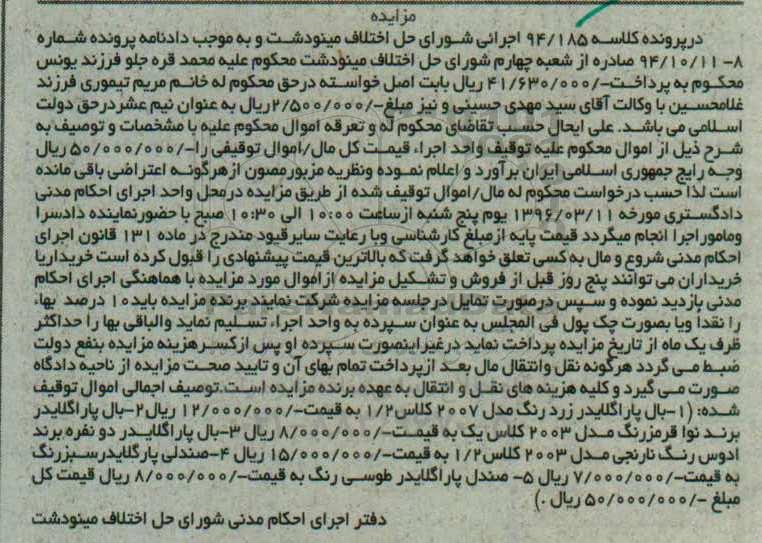 مزایده
درپرونده کلاسه ۹۴/۱۸۵ اجرائی شورای حل اختلاف مینودشت و به موجب دادنامه پرونده شماره
۸- ۹۴/۱۰/۱۱ صادره از شعبه چهارم شورای حل اختلاف مینودشت محکوم علیه محمد قره جلو فرزند یونس
محکوم به پرداخت-/۴۱/۶۳۰/۰۰۰ ریال بابت اصل خواسته درحق محکوم له خانم مریم تیموری فرزند
غلامحسین با وکالت آقای سید مهدی حسینی و نیز مبلغ-/۲/۵۰۰/۰۰۰ریال به عنوان نیم عشردرحق دولت
اسلامی می باشد. علی ایحال حسب تقاضای محکوم له و تعرقه اموال محکوم علیه با مشخصات و توصیف به
شرح ذیل از اموال محکوم علیه توقیف واحد اجراء قیمت کل مال/اموال توقیفی را-/۵۰/۰۰۰/۰۰۰ ریال
وجه رایج جمهوری اسلامی ایران برآورد و اعلام نموده ونظریه مزبورمصون ازهرگونه اعتراضی باقی مانده
است لذا حسب درخواست محکوم له مال/اموال توقیف شده از طریق مزایده درمحل واحد اجرای احکام مدنی
دادگستری مورخه ۱۳۹۶/۰۳/۱۱ یوم پنج شنبه ازساعت ۱۰:۰۰ الی ۱۰:۳۰ صبح با حضورنماینده دادسرا
وماموراجرا انجام میگردد قیمت پایه ازمبلغ کارشناسی وبا رعایت سایرقیود مندرج در ماده ۱۳۱ قانون اجرای
احکام مدنی شروع و مال به کسی تعلق خواهد گرفت که بالاترین قیمت پیشنهادی را قبول کرده است خریداریا
خریداران می توانند پنج روز قبل از فروش و تشکیل مزایده ازاموال مورد مزایده با هماهنگی اجرای احکام
مدنی بازدید نموده و سپس درصورت تمایل درجلسه مزایده شرکت نمایند برنده مزایده باید۱۰ درصد بهاء
را نقدا ویا بصورت چک پول فی المجلس به عنوان سپرده به واحد اجراء تسلیم نماید والباقی بها را حداکثر
ظرف یک ماه از تاریخ مزایده پرداخت نماید درغیراینصورت سپرده او پس ازکسرهزینه مزایده بنفع دولت
ضبط می گردد هرگونه نقل وانتقال مال بعد ازپرداخت تمام بهای آن و تایید صحت مزایده از ناحیه دادگاه
صورت می گیرد و کلیه هزینه های نقل و انتقال به عهده برنده مزایده است.توصیف اجمالی اموال توقیف
شده: (۱-بال پاراگلایدر زرد رنگ مدل ۲۰۰۷ کلاس۱/۲ به قیمت-/۱۲/۰۰۰/۰۰۰ ریال۲-بال پاراگلایدر
برند نوا قرمزرنگ مدل ۲۰۰۳ کلاس یک به قیمت-/۸/۰۰۰/۰۰۰ ریال ۳-بال پاراگلایدر دو نفره برند
ادوس رنگ نارنجی مدل ۲۰۰۳ کلاس۱/۲ به قیمت-/۱۵/۰۰۰/۰۰۰ ریال ۴-صندلی پارگلایدرسبزرنگ
به قیمت-/۷/۰۰۰/۰۰۰ ریال ۵- صندل پاراگلایدر طوسی رنگ به قیمت-/۸/۰۰۰/۰۰۰ ریال قیمت کل
مبلغ -/۵۰/۰۰۰/۰۰۰ ریال .)
دفتر اجرای احکام مدنی شورای حل اختلاف مینودشت